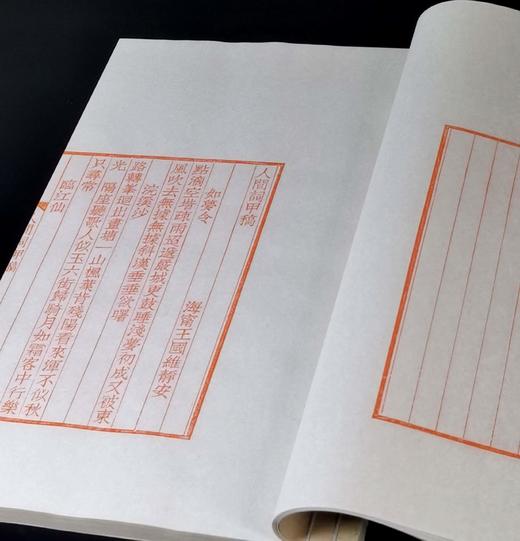 人間詞甲稿
海甯王國維靜安
如夢令
點滴空階疎雨迢遞嚴城更鼓睡淺夢初成又被東
風吹去無據無據斜漢垂垂欲曙
浣溪沙
路轉峯迴出畫塘一山楓葉背殘陽看來渾不似秋
光　隔座聽歌人似玉六街歸騎月如霜客中行樂
只尋常
臨江仙
人間詞甲稿